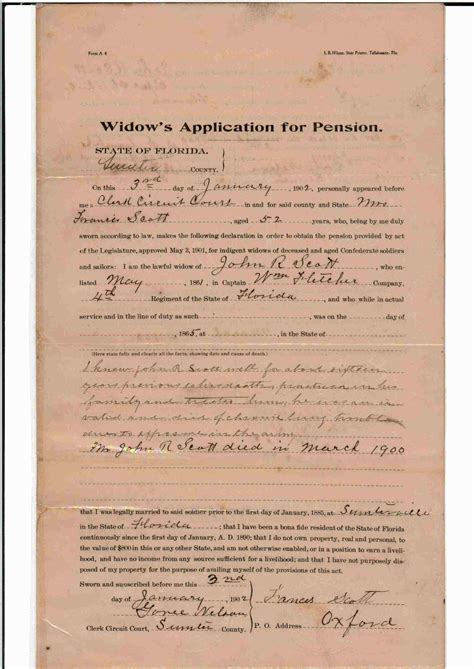 Form A 4
I. B. Hilson, State Printer, Tallahassee, Fla.
Widow's Application for Pension.
STATE OF FLORIDA.
Sumter COUNTY.
On this 3rd day of January 1902, personally appeared before
me a Clerk Circuit Court in and for said county and State Mrs
Francis Scott, aged 52 years, who, being by me duly
sworn according to law, makes the following declaration in order to obtain the pension provided by act
of the Legislature, approved May 3, 1901, for indigent widows of deceased and aged Confederate soldiers
and sailors: I am the lawful widow of John R Scott, who en-
listed May, 1861, in Captain Wm Fletcher Company,
4th Regiment of the State of Florida, and who while in actual
service and in the line of duty as such, was on the day of
, 1865, in the State of
(Here state fully and clearly all the facts, showing date and cause of death.)
I knew John R Scott well for about sixteen
years previous to his death, practiced in his
family and treated him, he was an in
valid and died of chronic lung trouble
due to exposure in the army
Mr John R Scott died in March 1900
that I was legally married to said soldier prior to the first day of January, 1885, at Sumterville
in the State of Florida; that I have been a bona fide resident of the State of Florida
continuously since the first day of January, A. D. 1890; that I do not own property, real and personal, to
the value of $800 in this or any other State, and am not otherwise enabled, or in a position to earn a liveli-
hood, and have no income from any source sufficient for a livelihood; and that I have not purposely dis-
posed of my property for the purpose of availing myself of the provisions of this act.
Sworn and subscribed before me this 3nd
day of January 1902
Francis Scott
Nelson
Clerk Circuit Court, Sumter County.
P. O. Address Oxford